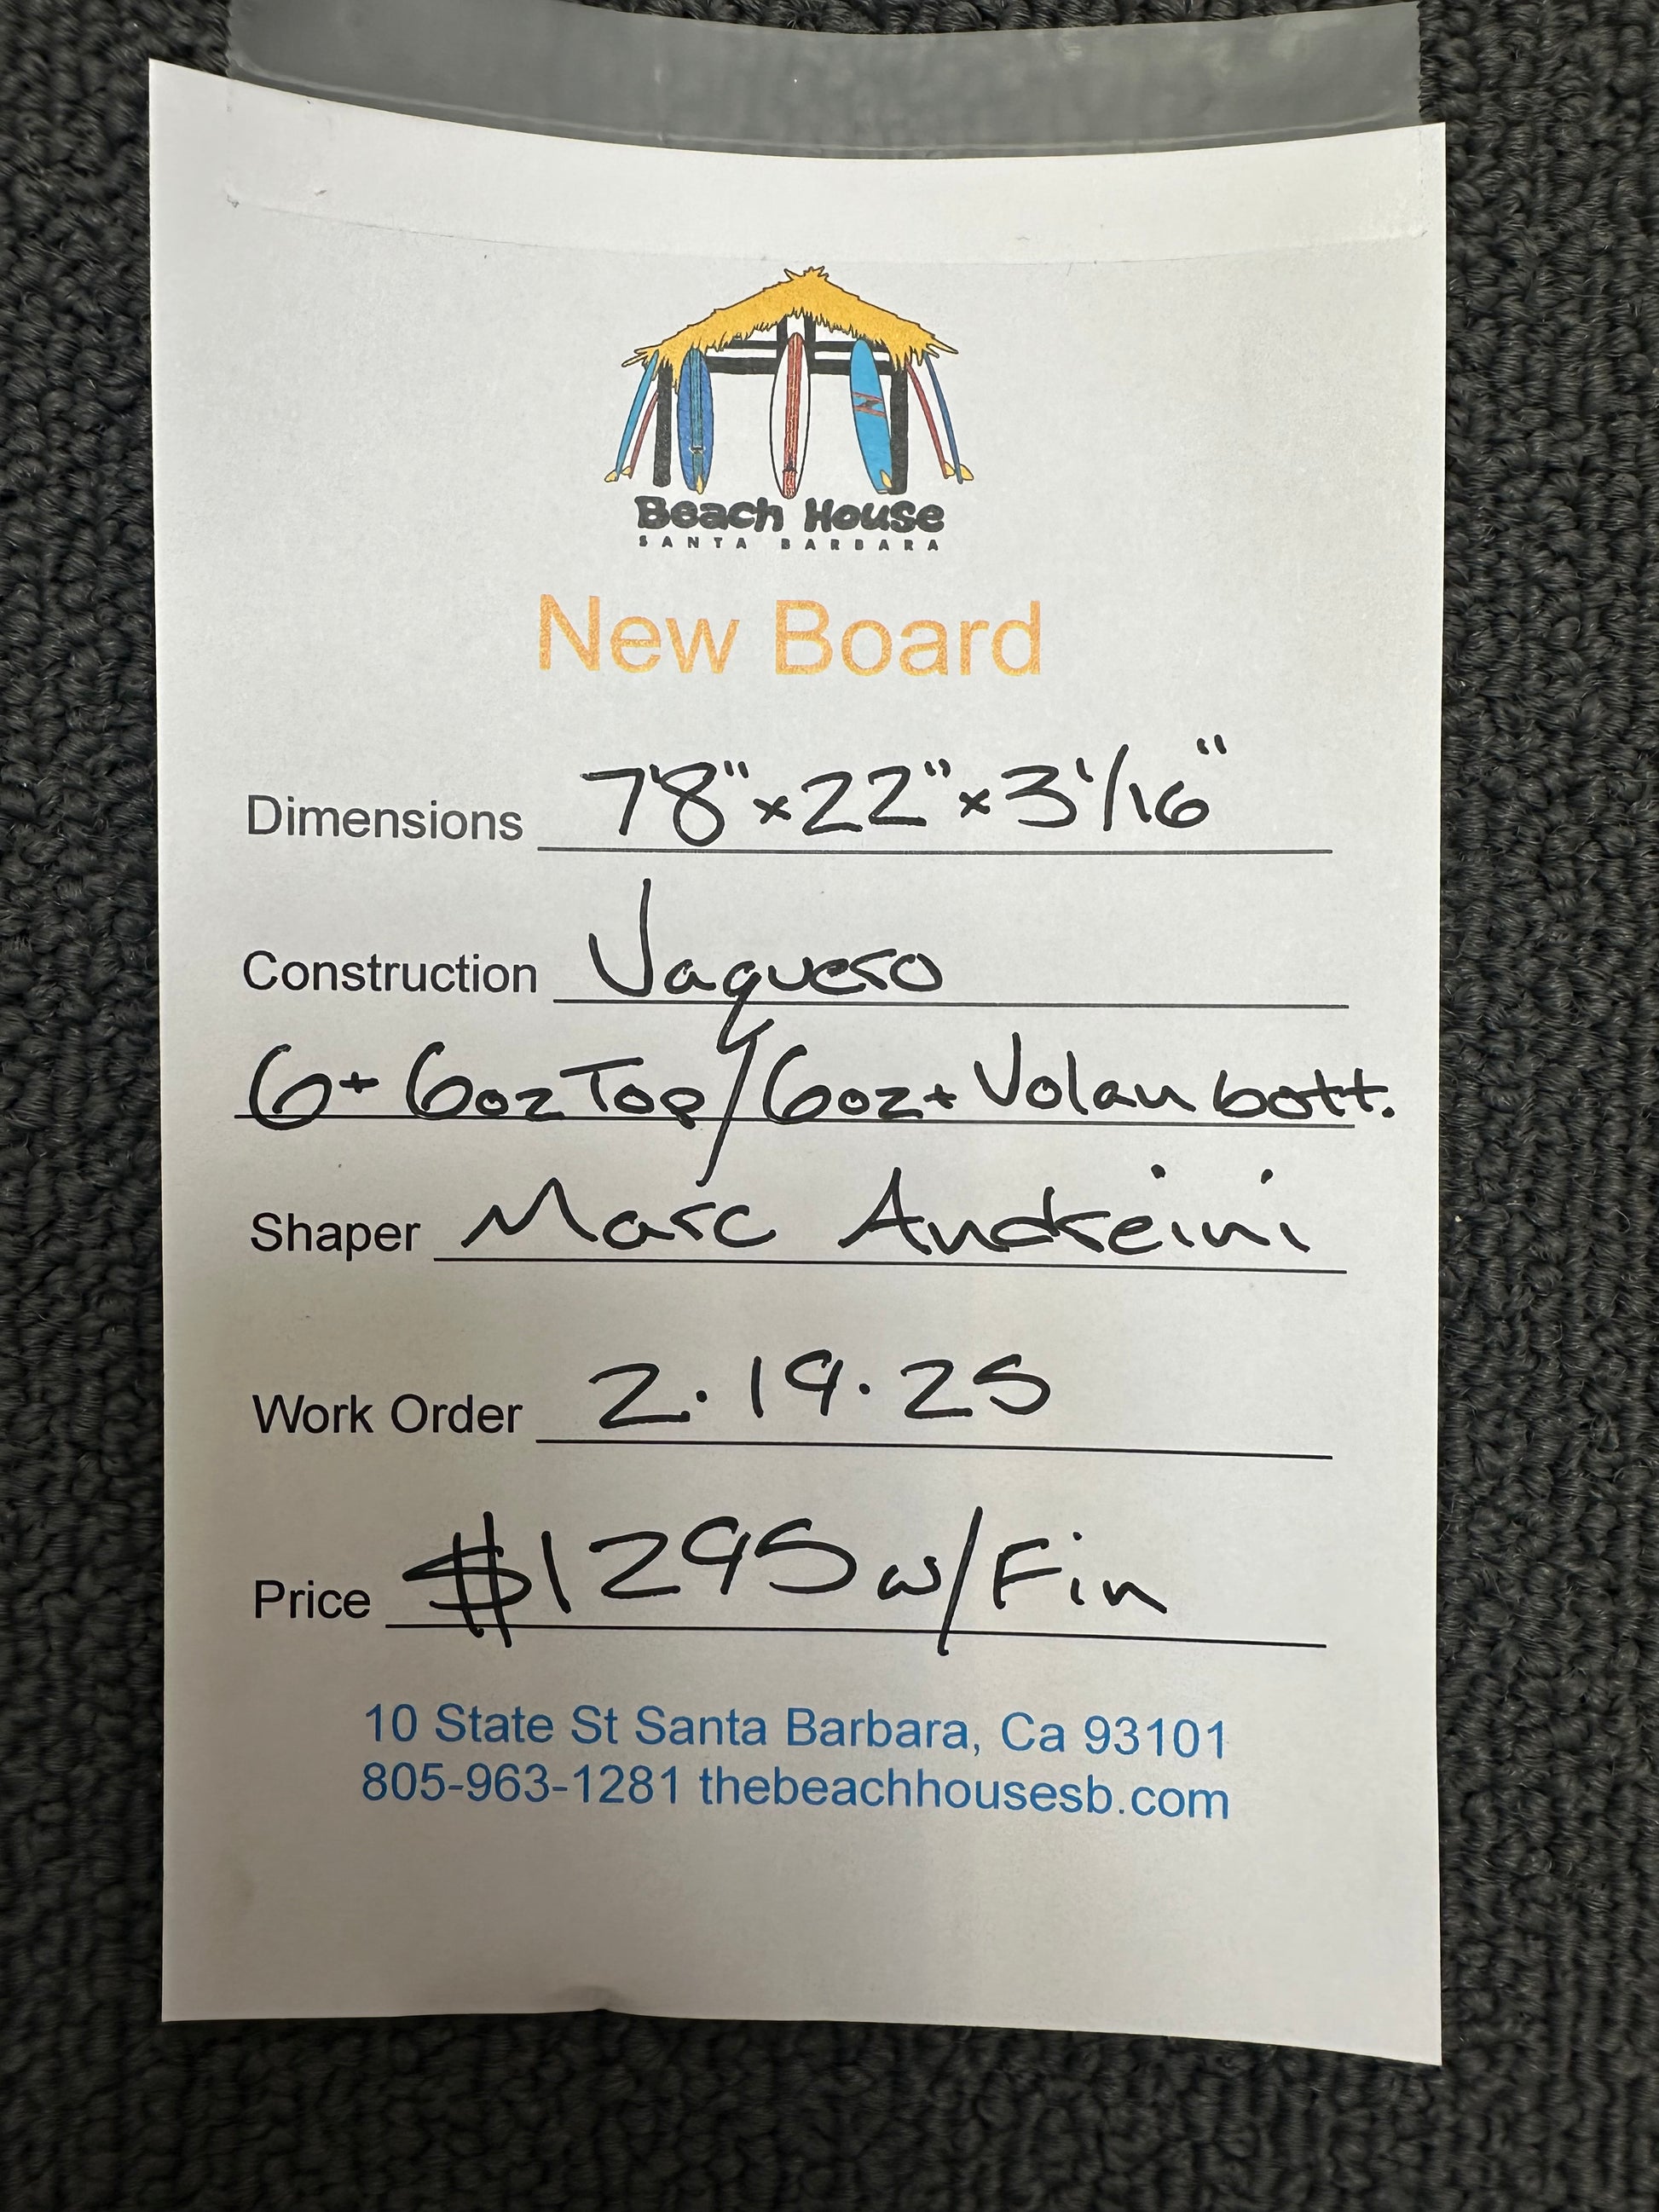 Beach House
SANTA BARBARA
New Board
Dimensions 7'8" x 22" x 3 1/16"
Construction Vaquero
6 + 6oz Top / 6oz + Volan bott.
Shaper Marc Andreini
Work Order 2.19.25
Price $1295 w/Fin
10 State St Santa Barbara, Ca 93101
805-963-1281 thebeachhousesb.com